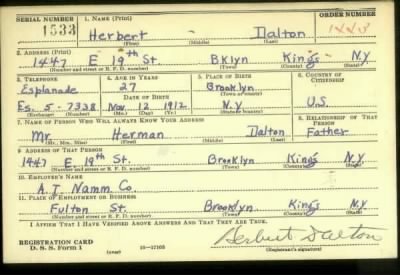 SERIAL NUMBER 1. NAME (Print) ORDER NUMBER
1533 Herbert Dalton
(First) (Middle) (Last)
2. ADDRESS (Print)
1447 E 19th St. Bklyn Kings N.Y.
(Number and street or R. F. D. number) (Town) (County) (State)
3. TELEPHONE 4. AGE IN YEARS 5. PLACE OF BIRTH 6. COUNTRY OF CITIZENSHIP
Esplanade 27 Brooklyn
(Town or county)
DATE OF BIRTH
Es. 5-7338 Nov. 12 1912 N.Y. U.S.
(Exchange) (Number) (Mo.) (Day) (Yr.) (State or country)
7. NAME OF PERSON WHO WILL ALWAYS KNOW YOUR ADDRESS 8. RELATIONSHIP OF THAT PERSON
Mr. Herman Dalton Father
(Mr., Mrs., Miss) (First) (Middle) (Last)
9. ADDRESS OF THAT PERSON
1447 E. 19th St. Brooklyn Kings N.Y.
(Number and street or R. F. D. number) (Town) (County) (State)
10. EMPLOYER'S NAME
A. I. Namm. Co.
11. PLACE OF EMPLOYMENT OR BUSINESS
Fulton St. Brooklyn. Kings N.Y.
(Number and street or R. F. D. number) (Town) (County) (State)
I AFFIRM THAT I HAVE VERIFIED ABOVE ANSWERS AND THAT THEY ARE TRUE.
REGISTRATION CARD
D. S. S. Form 1 16-17105 Herbert Dalton
(Registrant's signature)